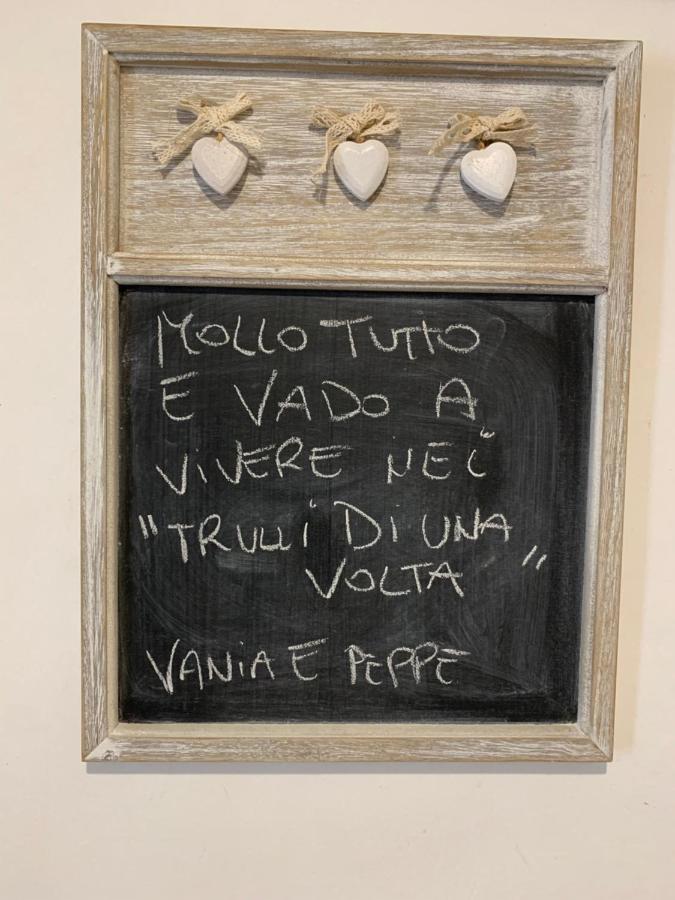 MOLLO TUTTO
E VADO A
VIVERE NEI
"TRULLI DI UNA
VOLTA"
VANIA E PEPPE